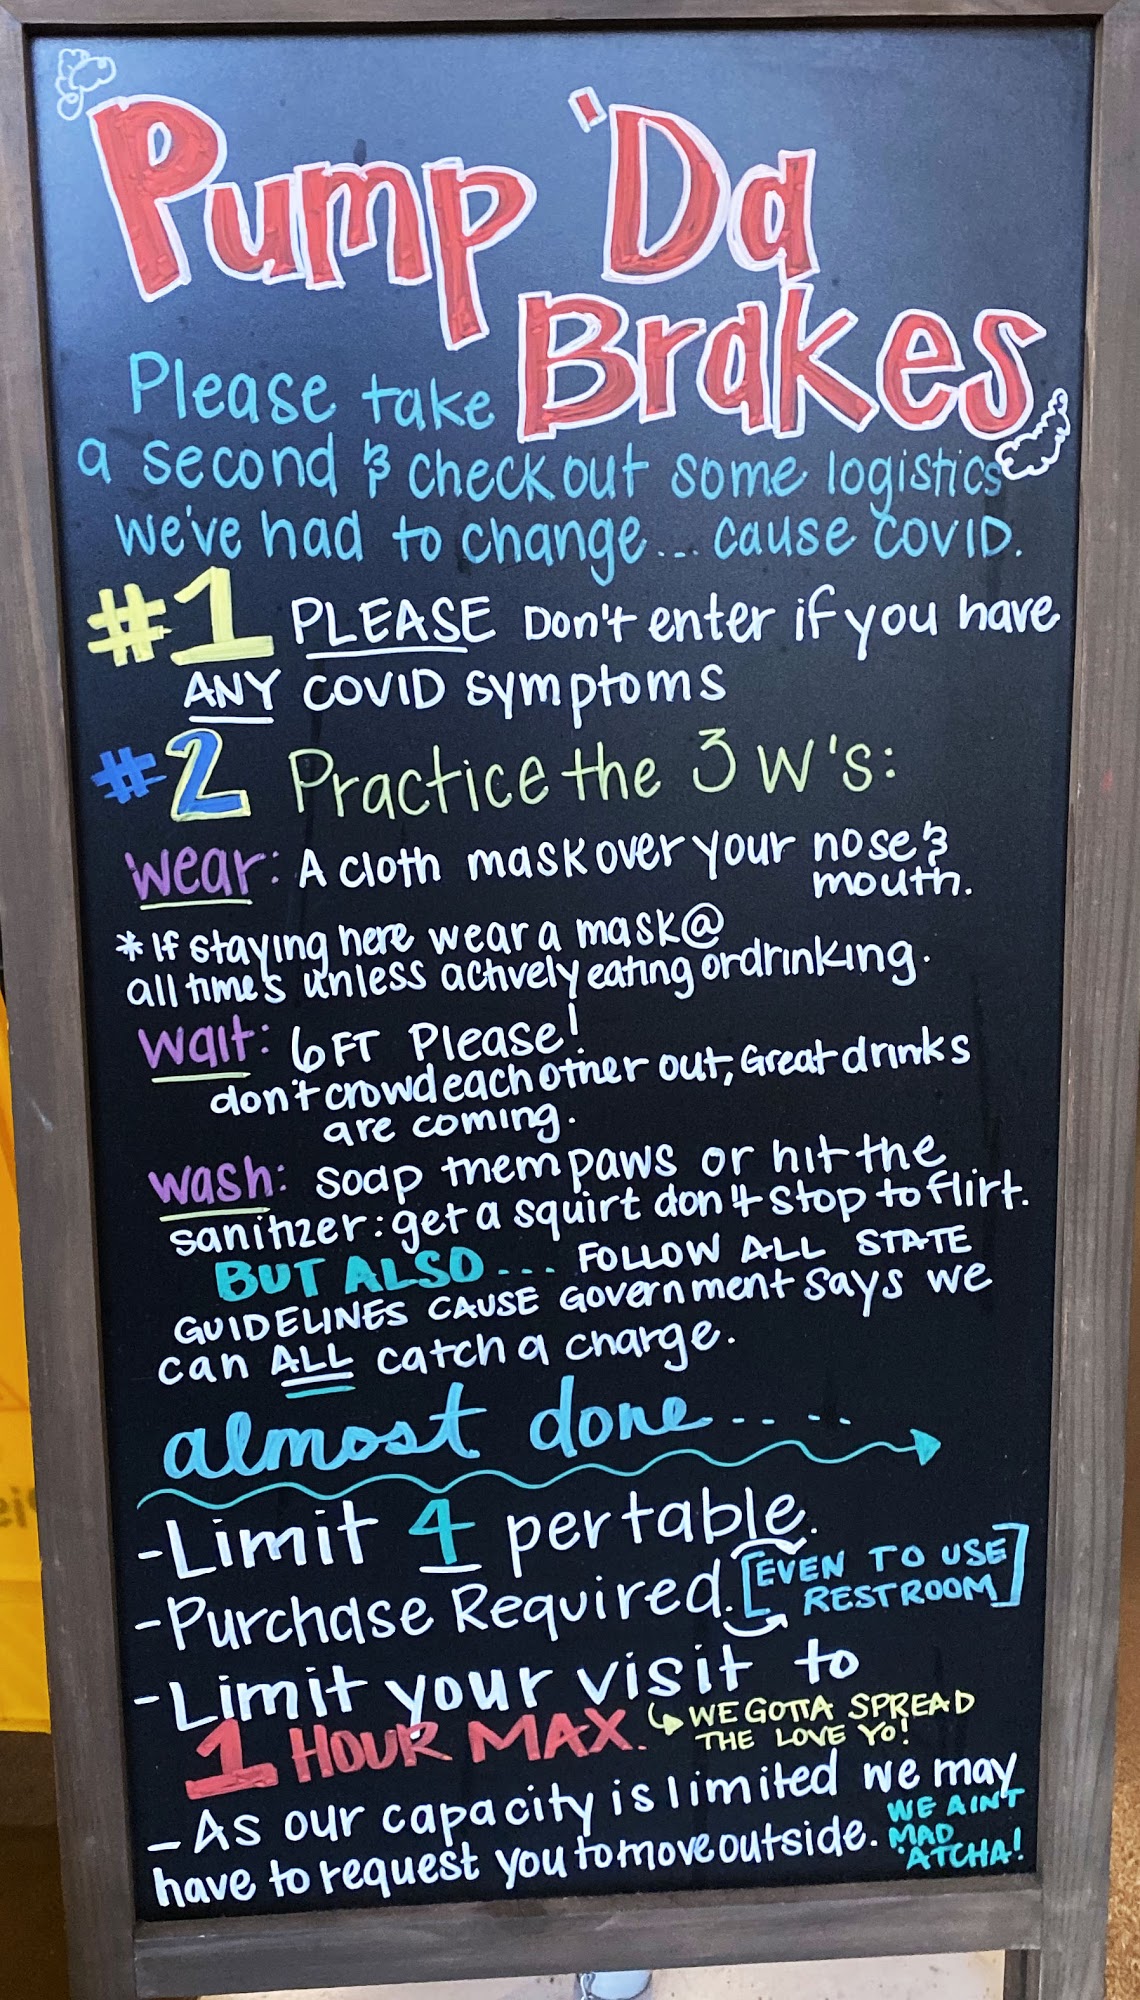 Pump 'Da
Brakes
Please take
a second & check out some logistics
we've had to change... cause COVID.
#1 PLEASE Don't enter if you have
ANY COVID symptoms
#2 Practice the 3 W's:
wear: A cloth mask over your nose &
mouth.
* If staying here wear a mask @
all times unless actively eating or drinking.
wait: 6FT Please!
don't crowd each other out, Great drinks
are coming.
wash: soap them paws or hit the
sanitizer: get a squirt don't stop to flirt.
BUT ALSO.... FOLLOW ALL STATE
GUIDELINES CAUSE Government says we
can ALL catch a charge.
almost done.....
- Limit 4 per table.
- Purchase Required. [EVEN TO USE
RESTROOM]
- Limit your visit to
1 HOUR MAX. WE GOTTA SPREAD
THE LOVE YO!
- As our capacity is limited we may
have to request you to move outside. WE AINT
MAD
'ATCHA!